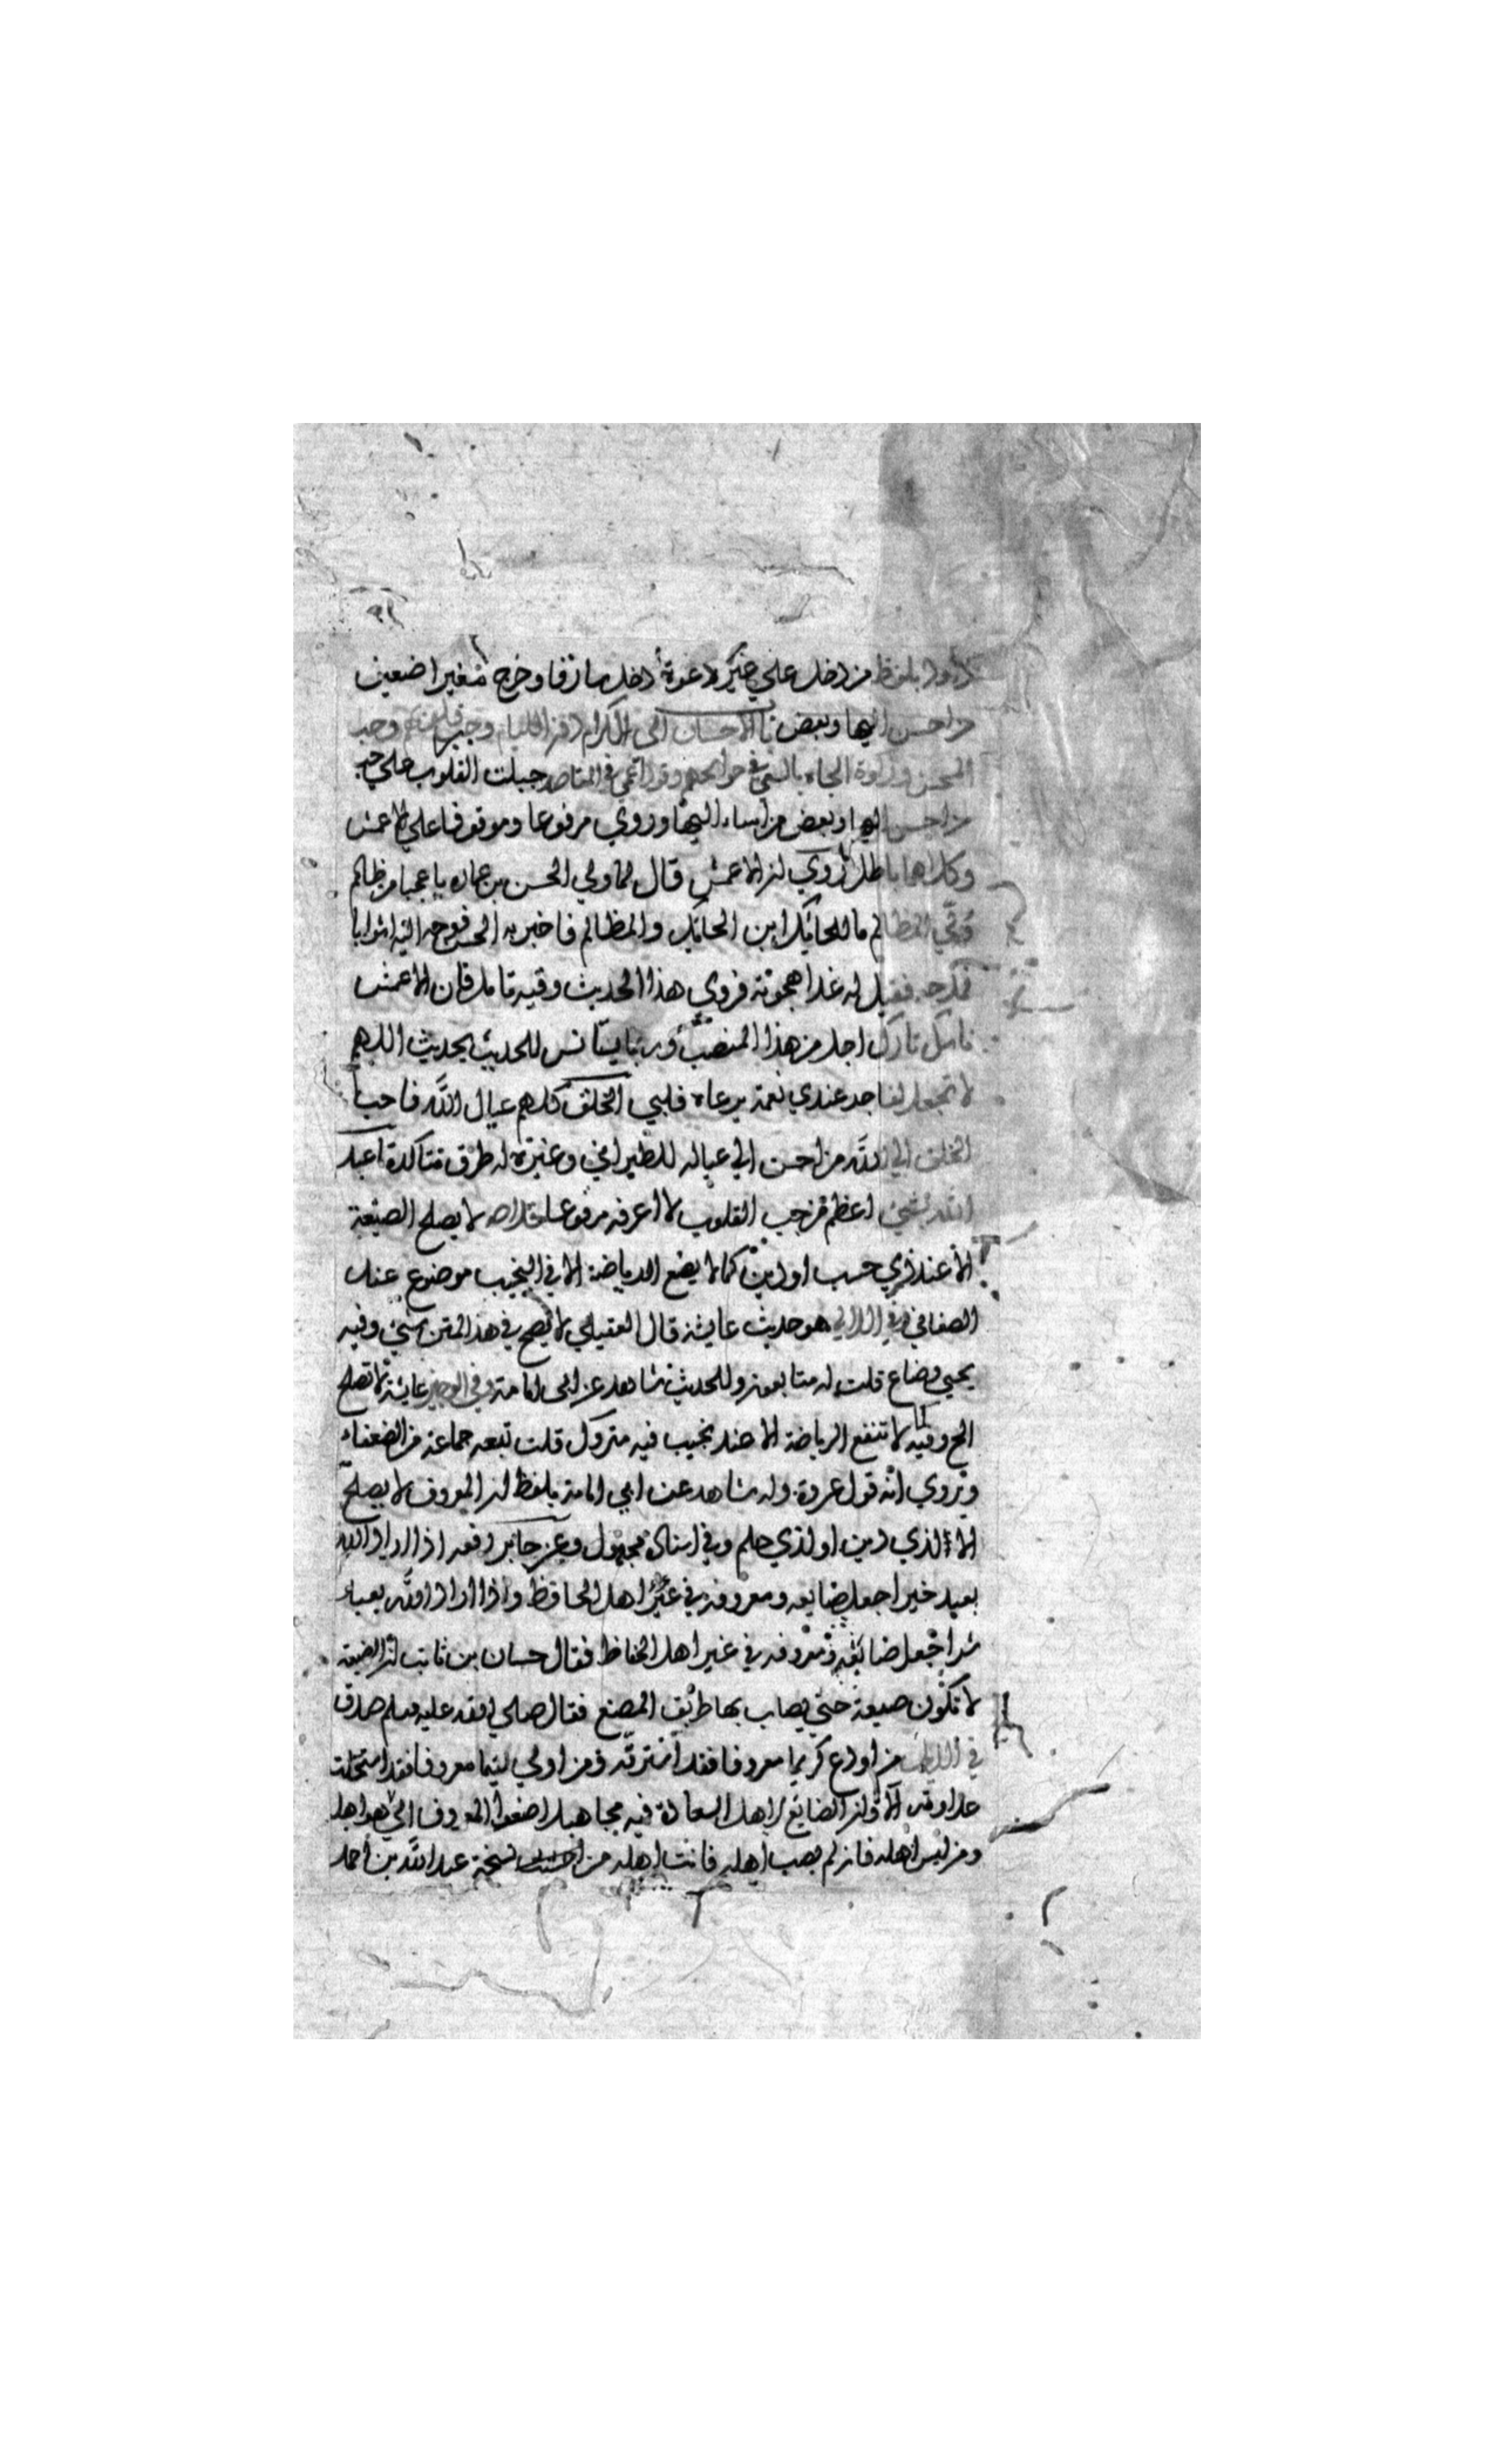 لأبي داود بلفظ من دخل علي غير دعوة دخل سارقا وخرج مغيرا ضعيف
من احسن اليها وبعض باب الاحسان الي الكرام دون اللئام وحب
المحسن وزكوة الجاه بالسعي في حوائجهم وقول في المقاصد جبلت القلوب علي حب
من احسن اليها وبعض من اساء اليها وروي مرفوعا وموقوفا علي الاعمش
وكلاهما باطل روي ان الاعمش قال لما ولي الحسن بن عماره يا عجبا من ظالم
ولي المظالم ما للحائك ابن الحائك والمظالم فاخبر به الحسن فوجه اليه اثوابا
فمدحه فقيل له غدا هجوته فروي هذا الحديث وفيه تامل فان الاعمش
ناسك تارك اجل من هذا المنصب وربما يستانس للحديث بحديث اللهم
لا تجعل لفاجر عندي نعمة يرعاه قلبي الخلق كلهم عيال الله فاحب
الخلق الي الله من احسن الي عياله للطبراني وغيره له طرق متاكدة اعبد
الله بشيء اعظم من حب القلوب لا اعرفه مرفوعا لا يصلح الصنيعة
الا عند ذي حسب او دين كما لا يضع الرياضة الا في النجيب موضوع عند
الصغاني وفي اللالي هو حديث عايشة قال العقيلي لا يصح في هذا المتن شيء وفيه
يحيي وضاع قلت له متابعون وللحديث شاهد عن ابي امامة وفي الوجيز عايشة لا تصلح
الخ وفيه لا تنفع الرياضة الا عند نجيب فيه متروك قلت تبعه جماعة من الضعفاء
وروي انه قول عروة وله شاهد عن ابي امامة بلفظ ان المعروف لا يصلح
الا لذي دين او لذي حلم وفي اسناده مجهول وعن جابر رفعه اذا اراد الله
بعبد خيرا جعل صنايعه ومعروفه في غير اهل الحافظ واذا اراد الله بعبد
شرا جعل صنايعه ومعروفه في غير اهل الحفاظ فقال حسان بن ثابت ان الصنيعة
لا تكون صنيعة حتي يصاب بها طريق المصنع فقال صلي الله عليه وسلم صدق
في الذيل من اودع كريما معروفا فقد استرقه ومن اولي لئيما معروفا فقد استجلب
عداوته الا وان الصنايع لاهل السعادة فيه مجاهيل اصنعوا المعروف الي من هو اهله
ومن ليس اهله فان لم يصب اهله فانت اهله من نسخة عبد الله بن احمد